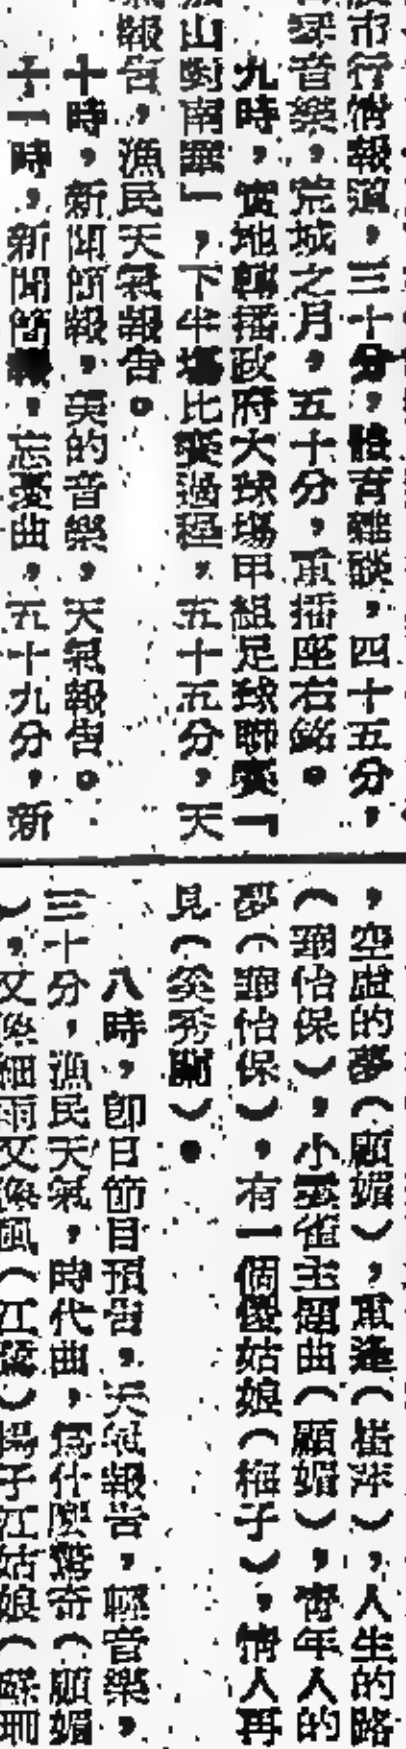 市行情報道，三十分，體育雜談，四十五分，
音樂，荒城之月，五十分，重播座右銘。
九時，實地轉播政府大球場甲組足球聯賽「
山對南華」，下半場比賽過程，五十五分，天
報告，漁民天氣報告。
十時，新聞簡報，美的音樂，天氣報告。
十一時，新聞簡報，忘憂曲，五十九分，新
，空虛的夢（顧媚），重逢（崔萍），人生的路
（鄺怡保），小雲雀主題曲（顧媚），青年人的
夢（鄺怡保），有一個傻姑娘（梅子），情人再
見（吳秀蘭）。
八時，即日節目預告，天氣報告，輕音樂，
三十分，漁民天氣，時代曲，爲什麼驚奇（顧媚
），又像細雨又像風（江蕙）揚子江姑娘（